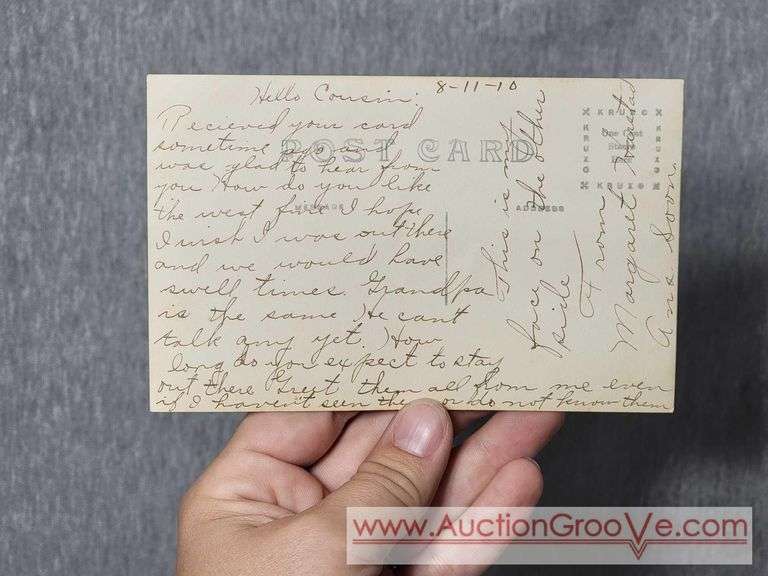 8-11-10
Hello Cousin:
Recieved your card
sometime ago and
was glad to hear from
you How do you like
the west fine I hope
I wish I was out there
and we would have
swell times. Grandpa
is the same He can't
talk any yet. How
long do you expect to stay
out there Greet them all from me even
if I haven't seen them or do not know them
POST CARD
MESSAGE
ADDRESS
KRUXO
KRUXO
One Cent
Stamp
Here
KRUXO
KRUXO
This is my
face on the other
side
From
Margaret
Ans Soon.
www.AuctionGrooVe.com